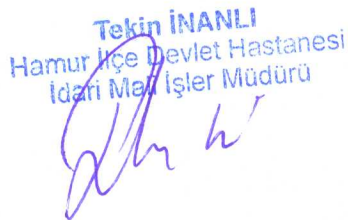 Tekin İNANLI
Hamur İlçe Devlet Hastanesi
İdari Mali İşler Müdürü